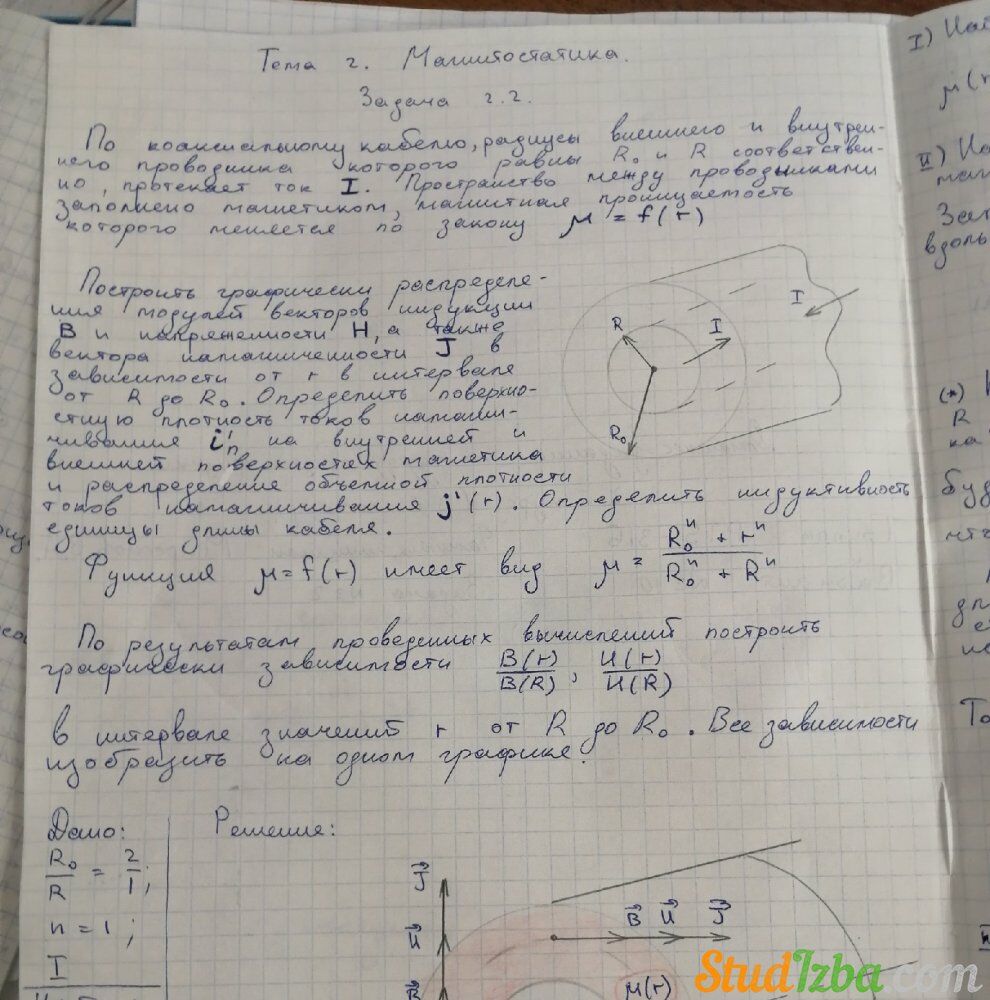 Тема 2. Магнитостатика.
Задача 2.2.
По коаксиальному кабелю, радиусы внешнего и внутрен-
него проводника которого равны R₀ и R соответствен-
но, протекает ток I. Пространство между проводниками
заполнено магнетиком, магнитная проницаемость
которого меняется по закону μ = f(r)
Построить графически распределе-
ния модулей векторов индукции
B и напряженности H, а также
вектора намагниченности J в
зависимости от r в интервале
от R до R₀. Определить поверхно-
стную плотность токов намагни-
чивания i'n на внутренней и
внешней поверхностях магнетика
и распределение объемной плотности
токов намагничивания j'(r). Определить индуктивность
единицы длины кабеля.
Функция μ = f(r) имеет вид μ = (R₀ⁿ + rⁿ)/(R₀ⁿ + Rⁿ)
R
I
I
R₀
По результатам проведенных вычислений построить
графически зависимости B(r)/B(R), H(r)/H(R)
в интервале значений r от R до R₀. Все зависимости
изобразить на одном графике.
Дано:
R₀/R = 2/1;
n = 1;
I
Решение:
J
H
B
B H J
μ(r)
I)
μ(r
II)
маг
вдоль
(*)
R
ка
буд
То
StudIzba.com